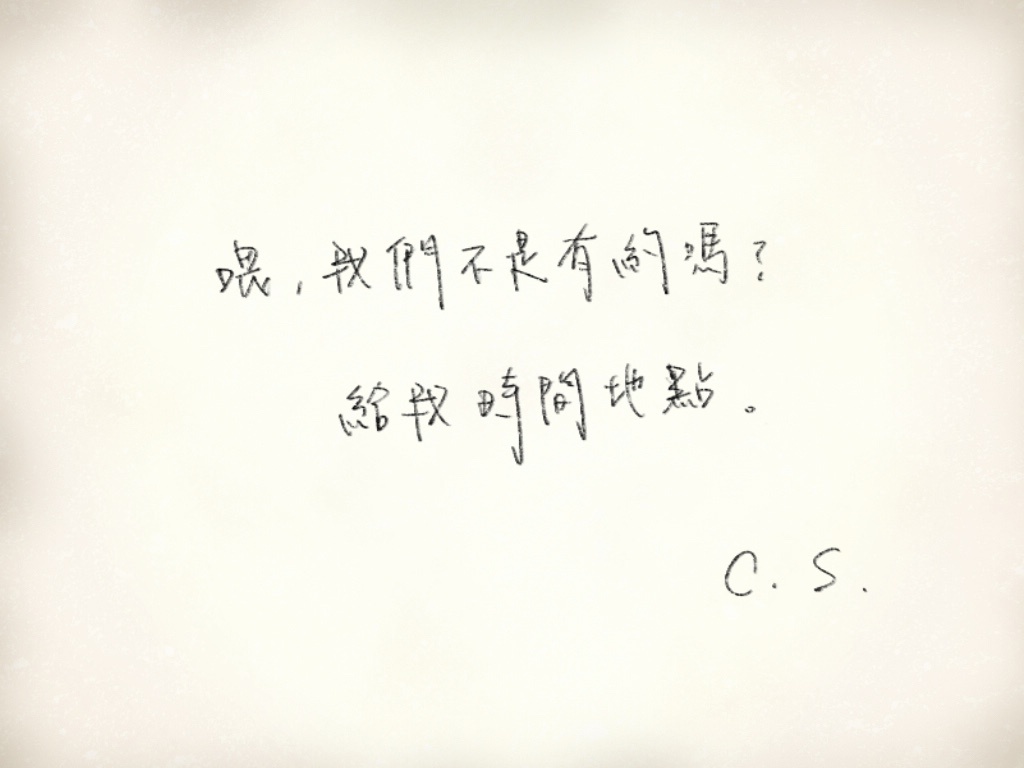 喂,我們不是有約嗎?
給我時間地點。
C. S.